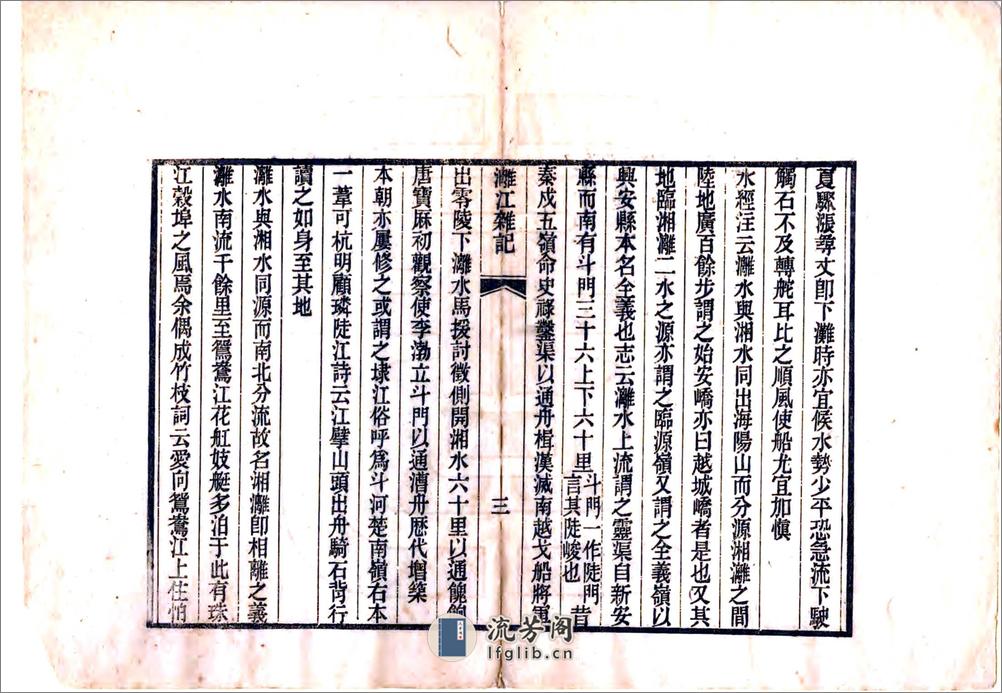 夏驟漲尋丈卽下灘時亦宜候水勢少平恐急流下駛
觸石不及轉舵耳比之順風使船尤宜加愼
水經注云灕水與湘水同出海陽山而分源湘灕之間
陸地廣百餘步謂之始安嶠亦曰越城嶠者是也又其
地臨湘灕二水之源亦謂之臨源嶺又謂之全義嶺以
興安縣本名全義也志云灕水上流謂之靈渠自新安
縣而南有斗門三十六上下六十里斗門一作陡門言其陡峻也昔
秦戍五嶺命史祿鑿渠以通舟楫漢滅南越戈船將軍
灕江雜記
三
出零陵下灕水馬援討徵側開湘水六十里以通餽餉
唐寶厤初觀察使李渤立斗門以通漕舟厯代增築
本朝亦屢修之或謂之埭江俗呼爲斗河楚南嶺右本
一葦可杭明顧璘陡江詩云江擘山頭出舟騎石背行
讀之如身至其地
灕水與湘水同源而南北分流故名湘灕卽相離之義
灕水南流千餘里至鴛鴦江花舡妓艇多泊于此有珠
江穀埠之風焉余偶成竹枝詞云愛向鴛鴦江上住怕
流芳阁
lfglib.cn